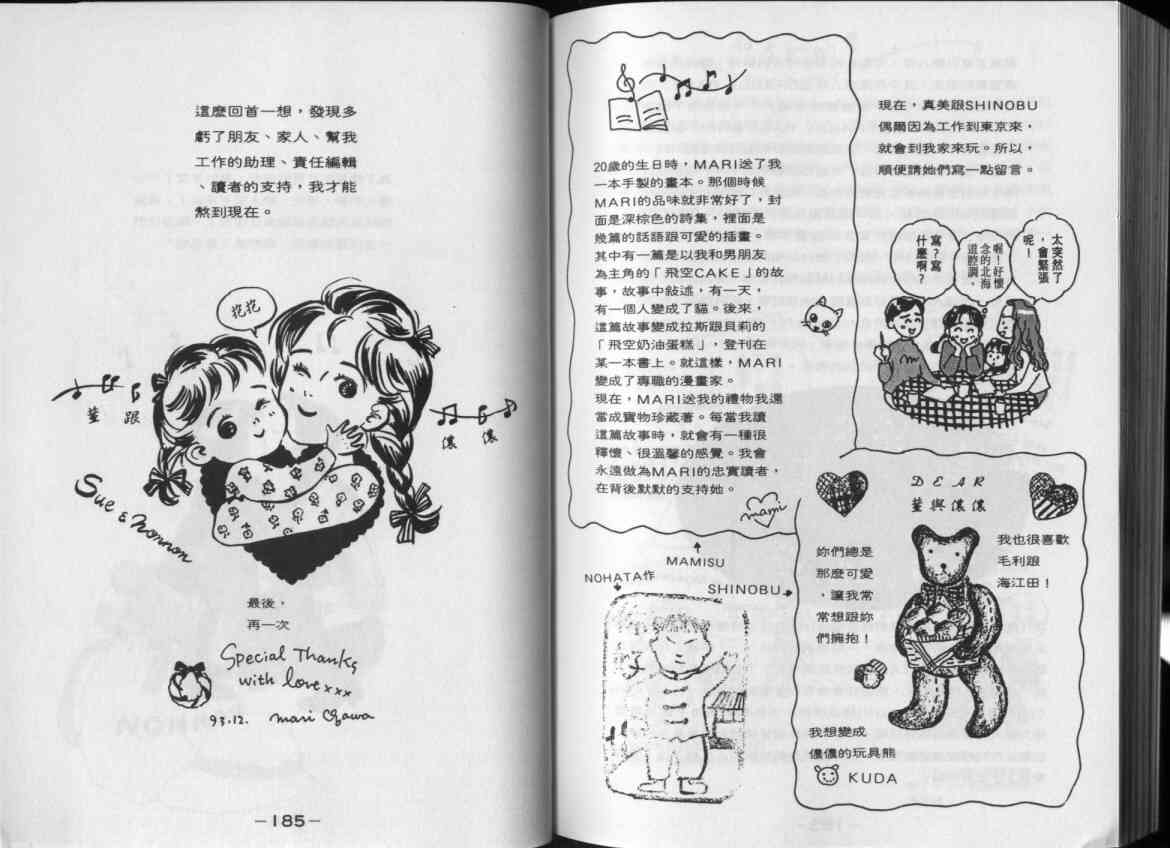 這麼回首一想，發現多
虧了朋友、家人、幫我
工作的助理、責任編輯
、讀者的支持，我才能
熬到現在。
抱抱
菫 跟
儂 儂
Sue & Nonnon
最後，
再一次
Special Thanks
with love xxx
93.12. Mari Ogawa
—185—
20歲的生日時，MARI送了我
一本手製的畫本。那個時候
MARI的品味就非常好了，封
面是深棕色的詩集，裡面是
幾篇的話語跟可愛的插畫。
其中有一篇是以我和男朋友
為主角的「飛空CAKE」的故
事，故事中敍述，有一天，
有一個人變成了貓。後來，
這篇故事變成拉斯跟貝莉的
「飛空奶油蛋糕」，登刊在
某一本書上。就這樣，MARI
變成了專職的漫畫家。
現在，MARI送我的禮物我還
當成寶物珍藏著。每當我讀
這篇故事時，就會有一種很
釋懷、很溫馨的感覺。我會
永遠做為MARI的忠實讀者，
在背後默默的支持她。
mami
MAMISU
NOHATA作
SHINOBU
現在，真美跟SHINOBU
偶爾因為工作到東京來，
就會到我家來玩。所以，
順便請她們寫一點留言。
太突然了
，會緊張
呢！
喔！好懷
念的北海
道腔調。
寫？寫
什麼啊？
DEAR
菫與儂儂
妳們總是
那麼可愛
，讓我常
常想跟妳
們擁抱！
我也很喜歡
毛利跟
海江田！
我想變成
儂儂的玩具熊
KUDA